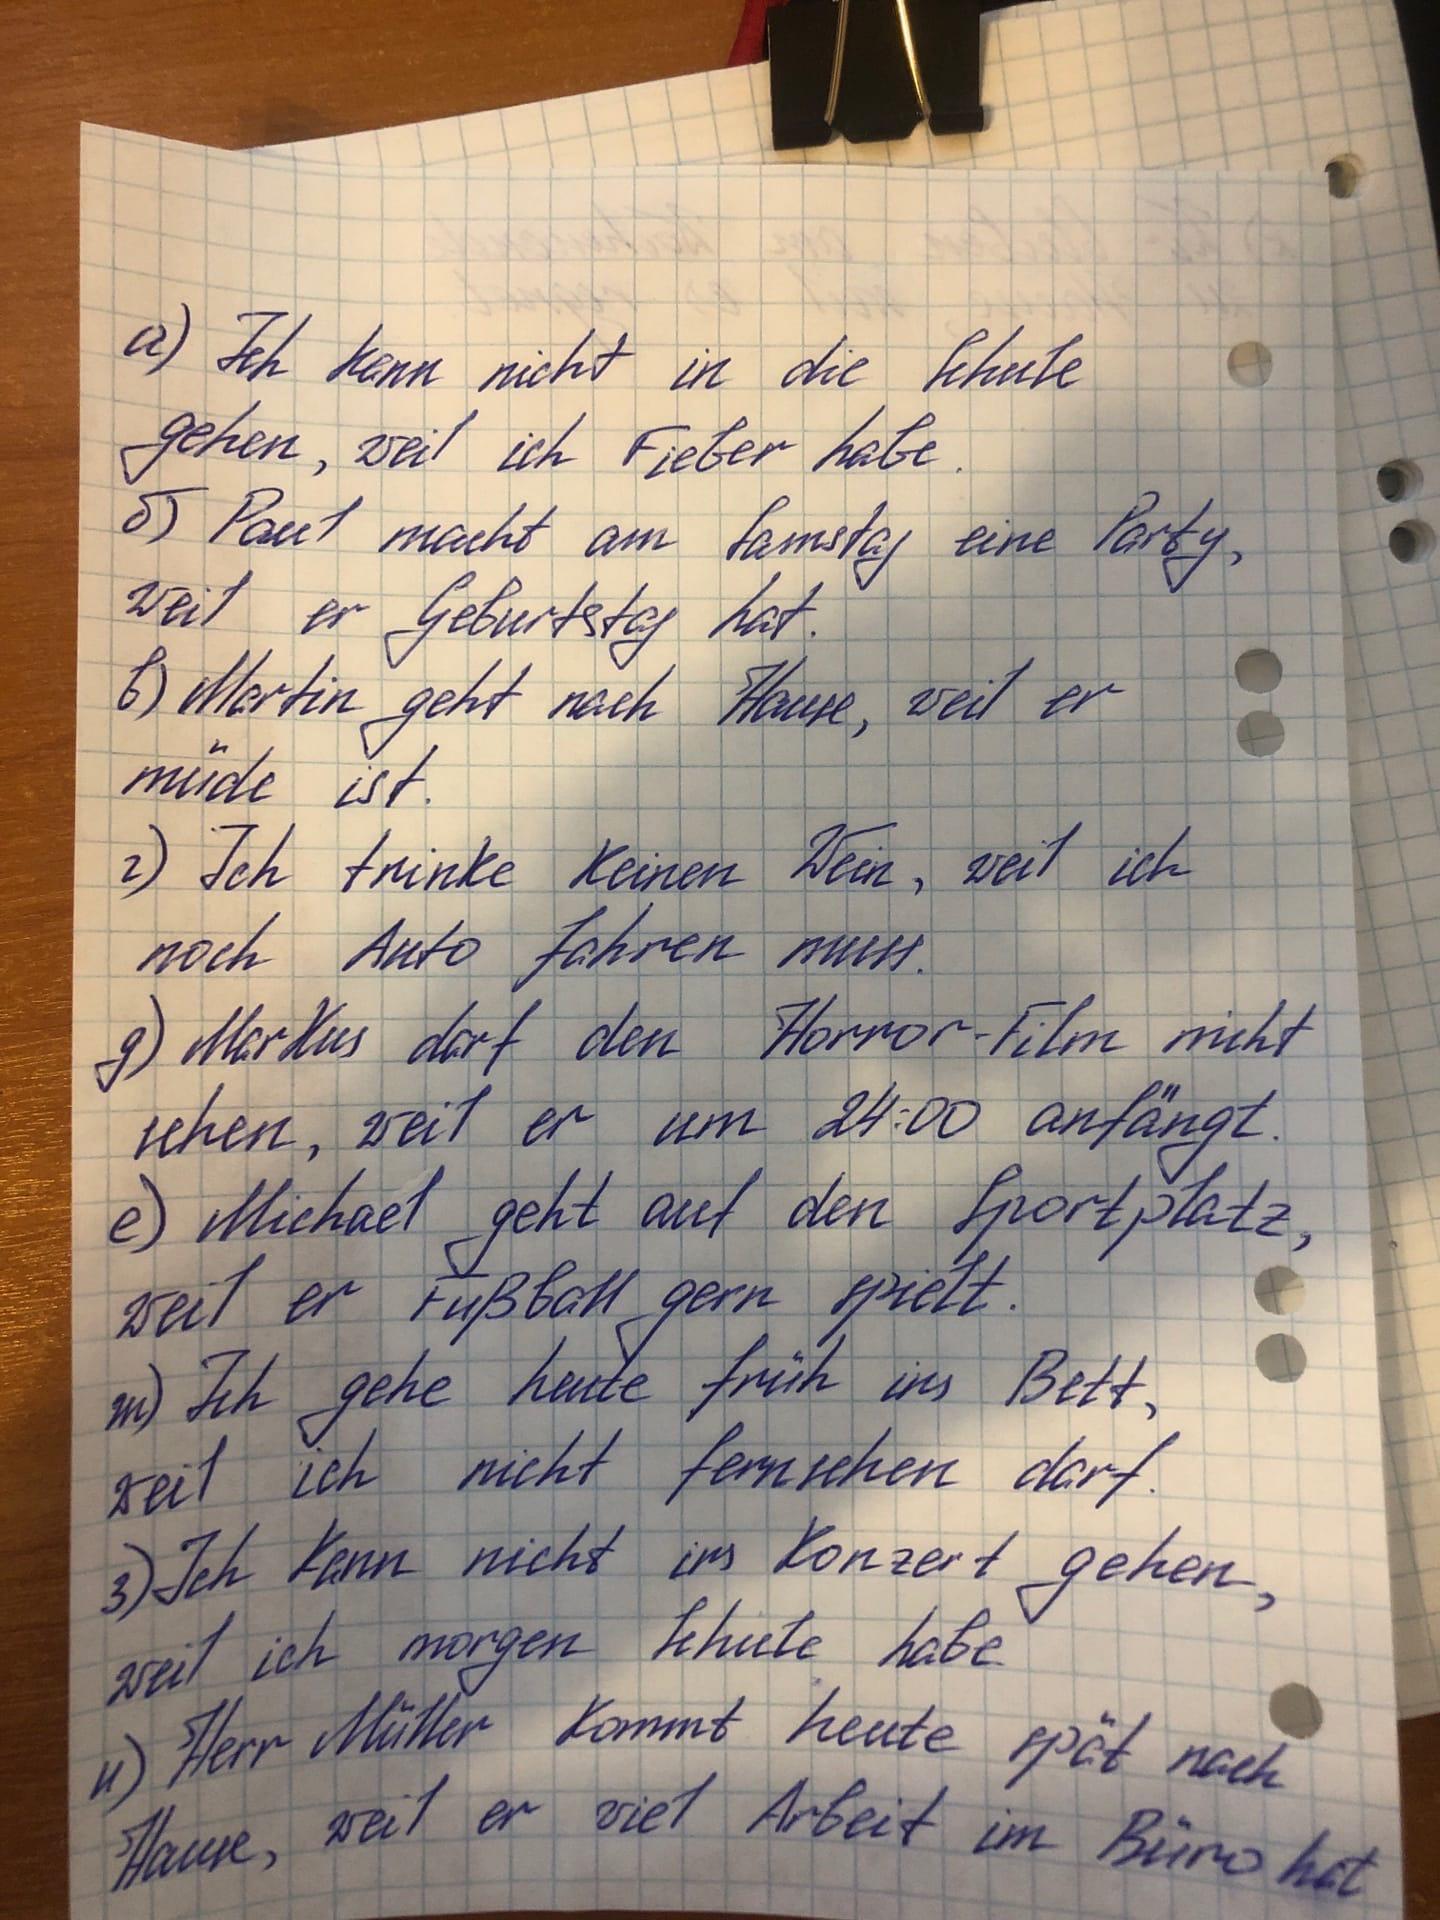 а) Ich kann nicht in die Schule
gehen, weil ich Fieber habe.
б) Paul macht am Samstag eine Party,
weil er Geburtstag hat.
в) Martin geht nach Hause, weil er
müde ist.
г) Ich trinke keinen Wein, weil ich
noch Auto fahren muss.
д) Markus darf den Horror-Film nicht
sehen, weil er um 24:00 anfängt.
е) Michael geht auf den Sportplatz,
weil er Fußball gern spielt.
ж) Ich gehe heute früh ins Bett,
weil ich nicht fernsehen darf.
з) Ich kann nicht ins Konzert gehen,
weil ich morgen Schule habe
и) Herr Müller kommt heute spät nach
Hause, weil er viel Arbeit im Büro hat